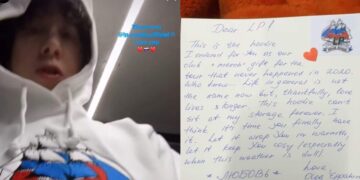 Thank you
Dear LP!
This is the hoodie
I ordered for you as our
club & merch gift for the
tour that never happened in 2020.
Who knew. Life in general is not
the same now but, thankfully, love
lives stronger. This hoodie can't
sit at my storage forever. I
think it's time you finally have
it. Let it wrap you in warmth
& let it keep you cosy (especially
when this weather is dull)
* ЛЮБОВЬ * Love
Olga